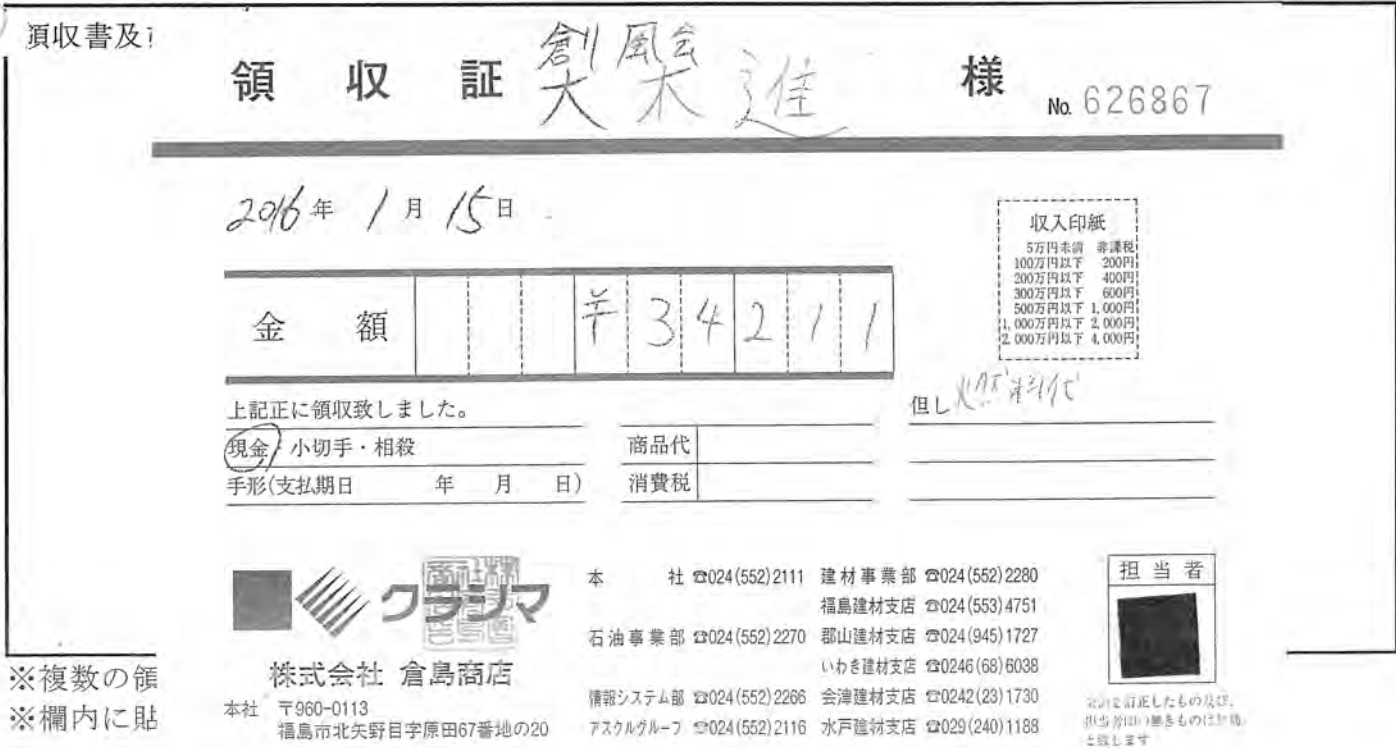 領収書及
領収証 創風会 様
大 木 進
No. 626867
2016年 1月 15日
収入印紙
5万円未満 非課税
100万円以下 200円
200万円以下 400円
300万円以下 600円
500万円以下 1,000円
1,000万円以下 2,000円
2,000万円以下 4,000円
金額 ¥34211
上記正に領収致しました。
但し 燃料代
現金・小切手・相殺
商品代
手形(支払期日 年 月 日)
消費税
クラシマ
株式会社 倉島商店
本社 〒960-0113
福島市北矢野目字原田67番地の20
本社 ☎024(552)2111 建材事業部 ☎024(552)2280
福島建材支店 ☎024(553)4751
石油事業部 ☎024(552)2270 郡山建材支店 ☎024(945)1727
いわき建材支店 ☎0246(68)6038
情報システム部 ☎024(552)2266 会津建材支店 ☎0242(23)1730
アスクルグループ ☎024(552)2116 水戸建材支店 ☎029(240)1188
担当者
金額を訂正したもの及び、
担当者印の無きものは無効
と致します
※複数の領
※欄内に貼